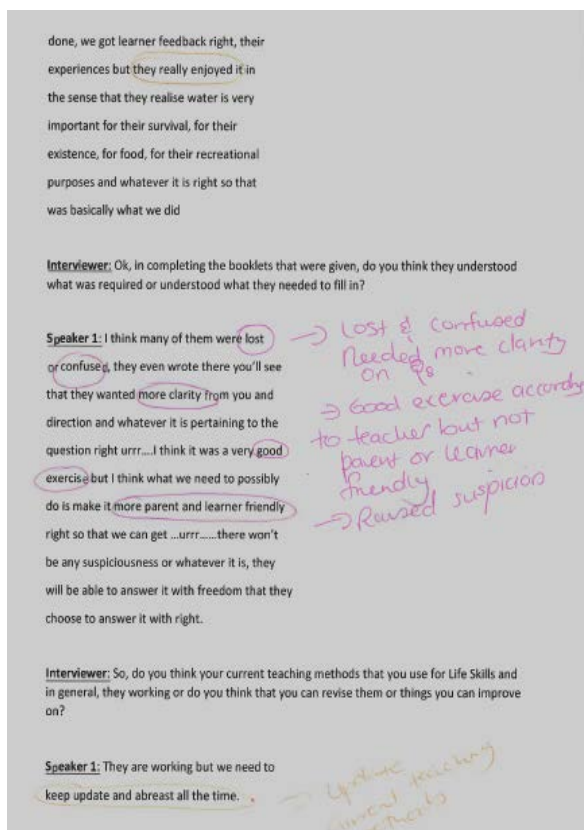 done, we got learner feedback right, their
experiences but they really enjoyed it in
the sense that they realise water is very
important for their survival, for their
existence, for food, for their recreational
purposes and whatever it is right so that
was basically what we did
Interviewer: Ok, in completing the booklets that were given, do you think they understood
what was required or understood what they needed to fill in?
Speaker 1: I think many of them were lost
or confused, they even wrote there you'll see
that they wanted more clarity from you and
direction and whatever it is pertaining to the
question right urrr....I think it was a very good
exercise but I think what we need to possibly
do is make it more parent and learner friendly
right so that we can get ...urrr......there won't
be any suspiciousness or whatever it is, they
will be able to answer it with freedom that they
choose to answer it with right.
→ Lost & confused
Needed more clarity
on Qs
→ Good exercise according
to teacher but not
parent or learner
friendly
→ Raised suspicion
Interviewer: So, do you think your current teaching methods that you use for Life Skills and
in general, they working or do you think that you can revise them or things you can improve
on?
Speaker 1: They are working but we need to
keep update and abreast all the time.
→ Update
current teaching
methods